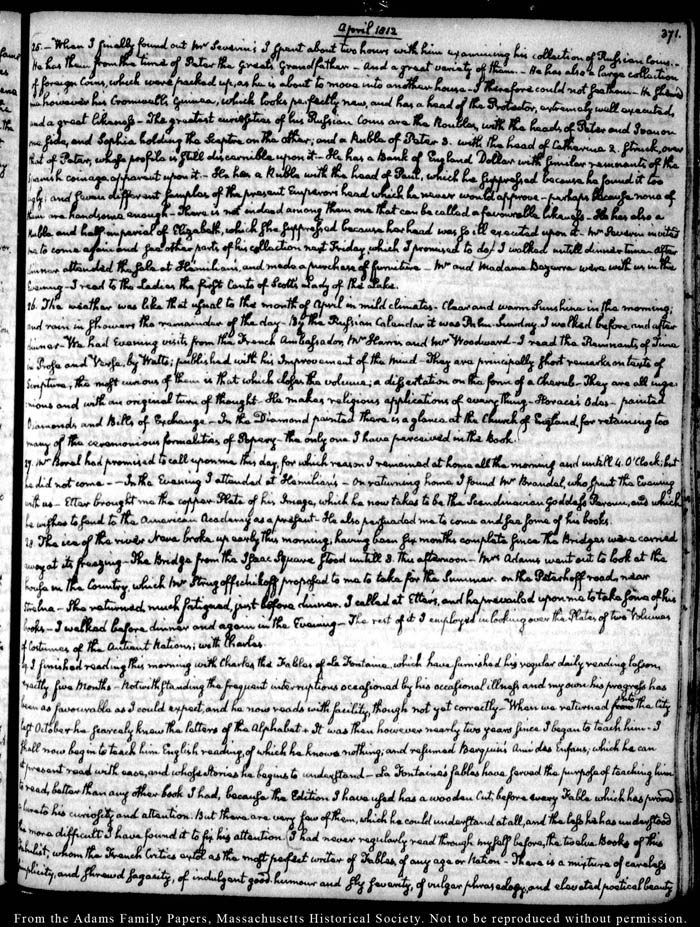 April 1812
371.
25. – When I finally found out Mr Severin's I spent about two hours with him examining his collection of Russian Coins. –
He has them from the time of Peter the Great's Grandfather – And a great variety of them – He has also a large collection
of foreign Coins, which were packed up, as he is about to move into another house – I therefore could not see them – He shewed
me however his Cromwell's Guinea, which looks perfectly new, and has a head of the Protector, extremely well executed,
and a great likeness – The greatest curiosities of his Russian Coins are the Roubles, with the heads of Peter and Ivan on
one side, and Sophia holding the Sceptre on the other; and a Ruble of Peter 3. with the head of Catherine 2. struck, over
that of Peter, whose profile is still discernible upon it – He has a Bank of England Dollar with similar remnants of the
Spanish coinage apparent upon it – He has a Ruble with the head of Paul, which he suppressed because he found it too
ugly; and seven different samples of the present Emperor's head which he never would approve – perhaps because none of
them are handsome enough – There is not indeed among them one that can be called a favourable likeness – He has also a
Ruble and half imperial of Elizabeth, which she suppressed because her head was so ill executed upon it – Mr Severin invited
me to come again and see other parts of his collection next Friday, which I promised to do. I walked untill dinner time – After
dinner attended the sale at Hamilian's, and made a purchase of furniture – Mr and Madame Bezerra were with us in the
Evening – I read to the Ladies the first Canto of Scott's Lady of the Lake.
26. The weather was like that usual to the month of April in mild climates. Clear and warm Sunshine in the morning;
and rain in showers the remainder of the day – By the Russian Calendar it was Palm Sunday. I walked before and after
dinner – We had Evening visits from the French Ambassador, Mr Harris and Mr Woodward – I read the Remnants of Time
in Prose and Verse, by Watts; published with his Improvement of the Mind – They are principally short remarks on texts of
Scripture, the most curious of them is that which closes the volume; a dissertation on the form of a Cherub – They are all inge-
nious and with an original turn of thought – He makes religious applications of every thing – Horace's Odes – painted
Diamonds and Bills of Exchange – In the Diamond painted there is a glance at the Church of England, for retaining too
many of the ceremonious formalities of Popery – the only one I have perceived in the Book.
27. Mr Borel had promised to call upon me this day, for which reason I remained at home all the morning and untill 4. O'Clock; but
he did not come – – In the Evening I attended at Hamilian's – On returning home I found Mr Brandel, who spent the Evening
with us – Etter brought me the copper Plate of his Image, which he now takes to be the Scandinavian Goddess and which
he wishes to send to the American Academy as a present – He also persuaded me to come and see some of his books.
28 The ice of the river Neva broke up early this morning, having been six months complete since the Bridges were carried
away at its freezing – The Bridge from the Isaac Square stood untill 3. this afternoon – Mrs Adams went out to look at the
house in the Country, which Mr proposed to me to take for the Summer. on the Peterhoff road, near
Strelna – She returned much fatigued, just before dinner. I called at Etter's, and he prevailed upon me to take some of his
books – I walked before dinner and again in the Evening – The rest of it I employed in looking over the Plates of two Volumes
of Costumes of the Antient Nations; with Charles.
I finished reading this morning with Charles the Fables of La Fontaine, which have furnished his regular daily reading lesson,
exactly five Months – Notwithstanding the frequent interruptions occasioned by his occasional illness and my own his progress has
been as favourable as I could expect, and he now reads with facility, though not yet correctly – When we returned from into the City
last October he scarcely knew the letters of the Alphabet – It was then however nearly two years since I began to teach him – I
shall now begin to teach him English reading, of which he knows nothing, and resumed Berquin's Ami des Enfans, which he can
at present read with ease, and whose stories he begins to understand – La Fontaine's fables have served the purpose of teaching him
to read, better than any other book I had, because the Edition I have used has a wooden Cut, before every Fable which has proved
a lure to his curiosity and attention. But there are very few of them, which he could understand at all, and the less he has understood
the more difficult I have found it to fix his attention. I had never regularly read through myself before, the twelve Books of this
Fabulist; whom the French Critics extol as the most perfect writer of Fables of any age or Nation – There is a mixture of careless
simplicity, and shrewd sagacity, of indulgent good-humour and sly severity, of vulgar phraseology, and elevated poetical beauty
From the Adams Family Papers, Massachusetts Historical Society. Not to be reproduced without permission.